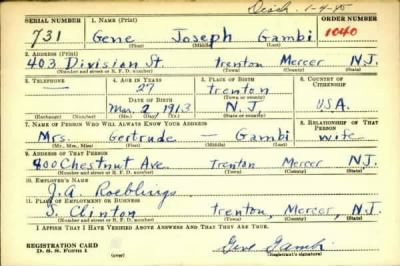 Disch. 1-4-45
SERIAL NUMBER 1. NAME (Print) ORDER NUMBER
731 Gene Joseph Gambi 1040
(First) (Middle) (Last)
2. ADDRESS (Print)
403 Division St Trenton Mercer N.J.
(Number and street or R. F. D. number) (Town) (County) (State)
3. TELEPHONE 4. AGE IN YEARS 5. PLACE OF BIRTH 6. COUNTRY OF CITIZENSHIP
— 27 Trenton
DATE OF BIRTH (Town or county)
Mar. 2, 1913 N.J. U.S.A.
(Exchange) (Number) (Mo.) (Day) (Yr.) (State or country)
7. NAME OF PERSON WHO WILL ALWAYS KNOW YOUR ADDRESS 8. RELATIONSHIP OF THAT PERSON
Mrs. Gertrude — Gambi wife
(Mr., Mrs., Miss) (First) (Middle) (Last)
9. ADDRESS OF THAT PERSON
800 Chestnut Ave. Trenton Mercer N.J.
(Number and street or R. F. D. number) (Town) (County) (State)
10. EMPLOYER'S NAME
J.A. Roeblings
11. PLACE OF EMPLOYMENT OR BUSINESS
S. Clinton Trenton, Mercer, N.J.
(Number and street or R. F. D. number) (Town) (County) (State)
I AFFIRM THAT I HAVE VERIFIED ABOVE ANSWERS AND THAT THEY ARE TRUE.
REGISTRATION CARD
D. S. S. Form 1 (over) Gene Gambi
(Registrant's signature)